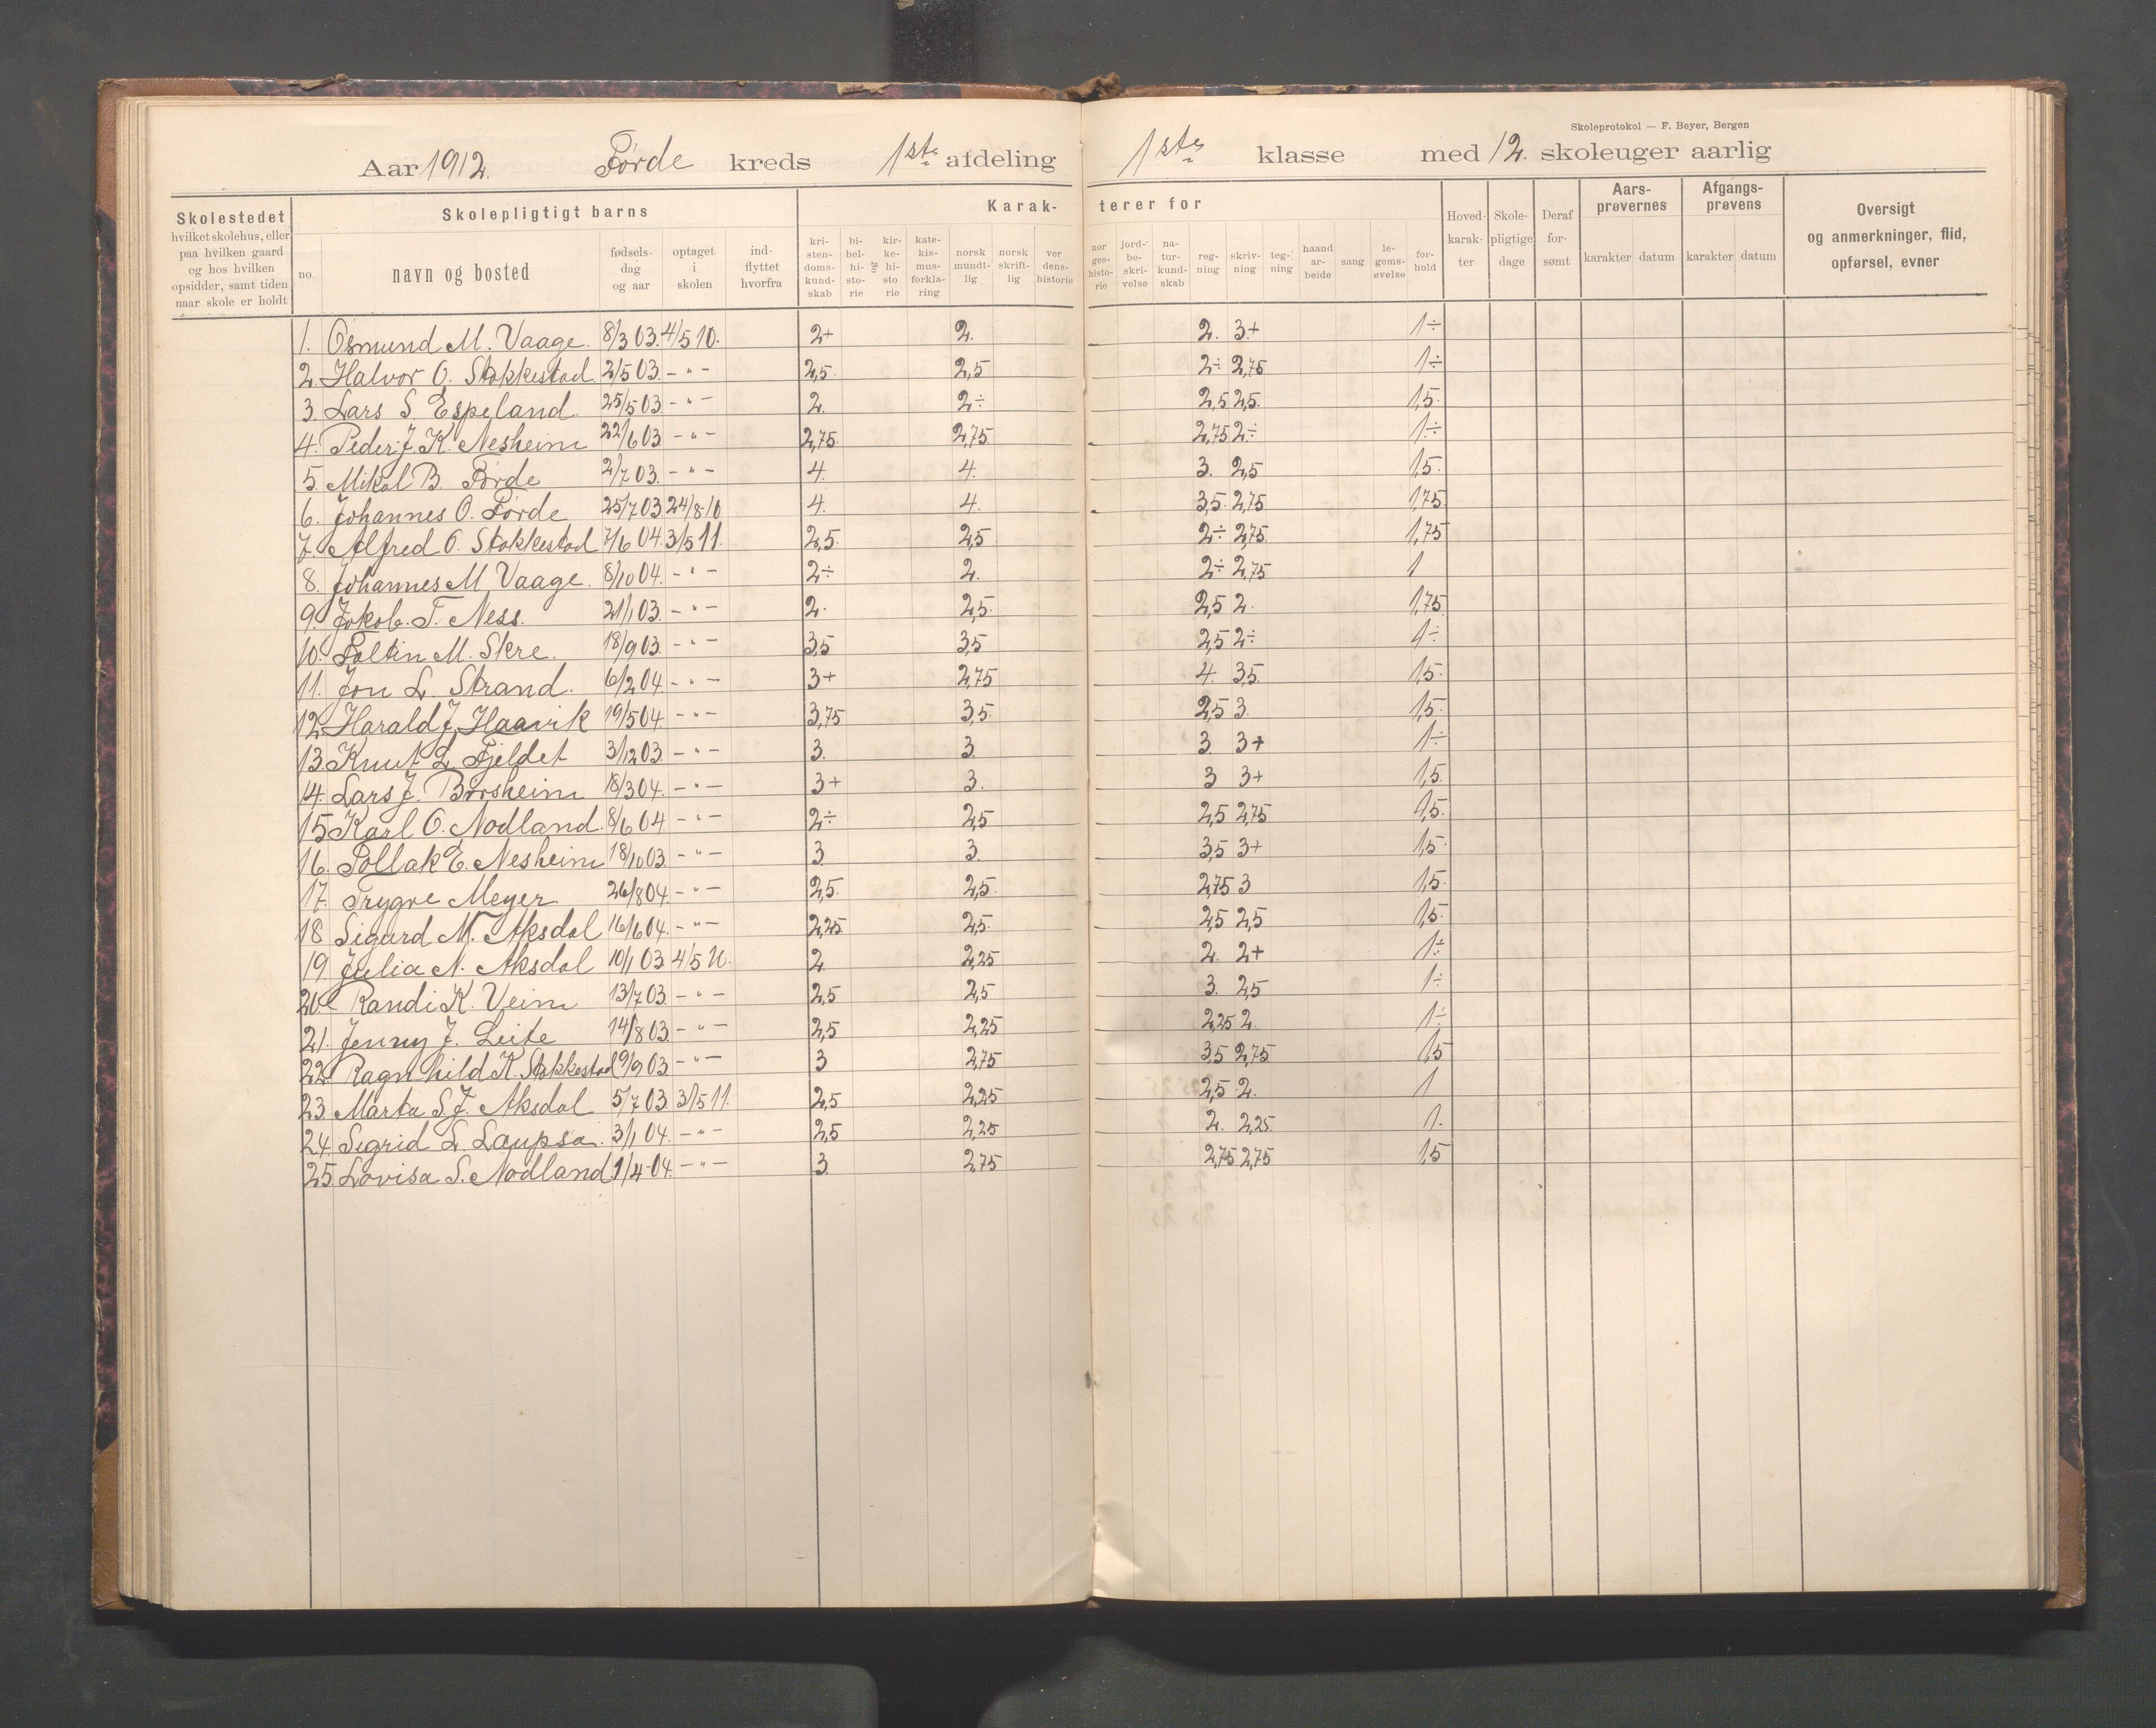 Skoleprotokol — F. Beyer, Bergen
Aar 1912. Førde kreds 1ste afdeling 1ste klasse med 12. skoleuger aarlig
Skolestedet
hvilket skolehus, eller
paa hvilken gaard
og hos hvilken
opsidder, samt tiden
naar skole er holdt
Skolepligtigt barns
no.
navn og bosted
fødsels-
dag
og aar
optaget
i
skolen
ind-
flyttet
hvorfra
Karak-
terer for
kri-
sten-
doms-
kund-
skab
bi-
bel-
hi-
sto-
rie
og
kir-
ke-
hi-
sto
rie
kate-
kis-
mus-
forkla-
ring
norsk
mundt-
lig
norsk
skrift-
lig
ver
dens-
historie
nor
ges-
histo-
rie
jord-
be-
skri-
velse
na-
tur-
kund-
skab
reg-
ning
skriv-
ning
teg-
ning
haand
ar-
beide
sang
le-
gems-
øvelse
for-
hold
Hoved-
karak-
ter
Skole-
pligtige
dage
Deraf
for-
sømt
Aars-
prøvernes
karakter datum
Afgangs-
prøvens
karakter datum
Oversigt
og anmerkninger, flid,
opførsel, evner
1. Osmund M. Vaage. 8/3 03. 4/5 10. 2+ 2. 2. 3+ 1÷
2. Halvor O. Stakkestad. 2/5 03. -"- 2,5. 2,5 2÷ 2,75 1÷
3. Lars S. Espeland. 25/5 03 -"- 2. 2÷ 2,5 2,5. 1,5.
4. Peder J. K. Nesheim 22/6 03 -"- 2,75. 2,75 2,75 2÷ 1÷
5. Mikal B. Førde 2/7 03. -"- 4. 4. 3. 2,5 1,5.
6. Johannes O. Førde 25/7 03 24/8 10 4. 4. 3,5. 2,75 1,75
7. Alfred O. Stakkestad 7/6 04. 3/5 11. 2,5. 2,5 2÷ 2,75 1,75
8. Johannes M. Vaage. 8/10 04. -"- 2÷ 2. 2÷ 2,75 1
9. Jakob. T. Ness. 21/1 03. -"- 2. 2,5. 2,5 2. 1,75
10. Foltin M. Skre. 18/9 03. -"- 3,5 3,5 2,5 2÷ 1÷
11. Jon L. Strand. 6/2 04. -"- 3+ 2,75 4. 3,5. 1,5.
12. Harald J. Haavik 19/5 04. -"- 3,75 3,5. 2,5 3. 1,5.
13. Knut L. Fjeldet 3/12 03. -"- 3. 3. 3. 3+ 1÷
14. Lars J. Børsheim 18/3 04. -"- 3+ 3. 3 3+ 1,5.
15. Karl O. Nodland. 8/6 04. -"- 2÷ 2,5 2,5 2,75 1,5.
16. Tollak E. Nesheim 18/10 03. -"- 3. 3. 3,5 3+ 1,5.
17. Trygve Meyer. 26/8 04. -"- 2,5. 2,5. 2,75 3 1,5.
18 Sigurd M. Aksdal 16/6 04. -"- 2,25 2,5. 2,5 2,5 1,5.
19. Julia N. Aksdal 10/1 03. 4/5 10. 2. 2,25 2. 2+ 1÷
20. Randi K. Veim 13/7 03. -"- 2,5 2,5 3. 2,5 1÷
21. Jenny J. Leite 14/8 03. -"- 2,5 2,25 2,25 2. 1÷
22. Ragnhild K. Stakkestad 9/9 03 -"- 3 2,75 3,5 2,75 1,5
23. Marta S. J. Aksdal 5/7 03. 3/5 11. 2,5 2,25 2,5 2. 1
24. Sigrid L. Laupsa. 3/1 04. -"- 2,5 2,25 2. 2,25. 1.
25. Lovisa S. Nodland 1/4 04. -"- 3. 2,75 2,75 2,75 1,5